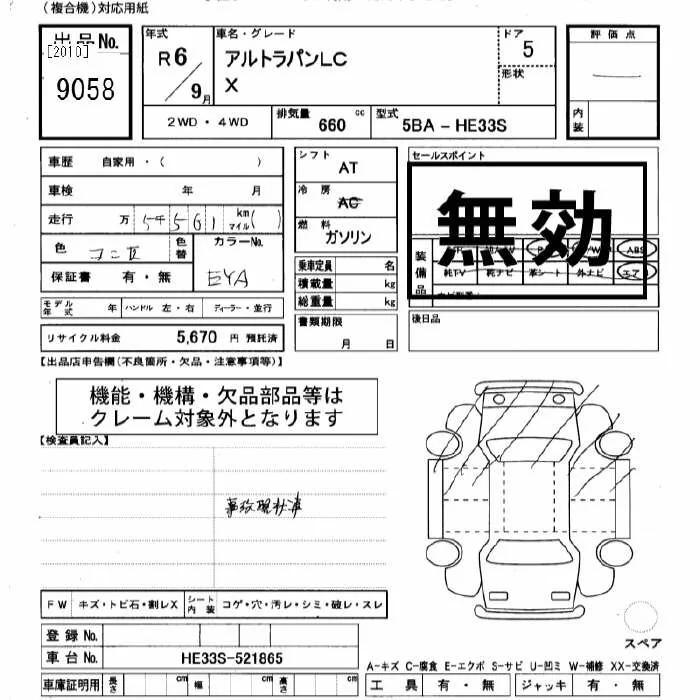 (複合機)対応用紙
出品No.
[2010]
9058
年式
R6/9月
車名・グレード
アルトラパンLC
X
ドア
5
形状
評価点
内装
2WD・4WD
排気量 660 cc
型式 5BA-HE33S
車歴 自家用・( )
車検 年 月
走行 万 km( )マイル
色
色替
カラーNo.
保証書 有・無
モデル年式 年 ハンドル 左・右 ディーラー・並行
リサイクル料金 5,670 円 預託済
シフト AT
冷房 AC
燃料 ガソリン
乗車定員 名
積載量 kg
総重量 kg
書類期限
月 日
セールスポイント
無効
装備品
ABS
純TV 純ナビ 革シート 外ナビ エア
後日品
【出品店申告欄(不良箇所・欠品・注意事項等)】
機能・機構・欠品部品等は
クレーム対象外となります
【検査員記入】
事故現状車
FW キズ・トビ石・割レX シート内装 コゲ・穴・汚レ・シミ・破レ・スレ
登録No.
車台No. HE33S-521865
車庫証明用 長さ cm 幅 cm 高さ cm
スペア
A-キズ C-腐食 E-エクボ S-サビ U-凹ミ W-補修 XX-交換済
工具 有・無 ジャッキ 有・無